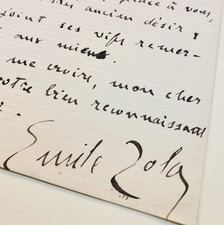 à vous,
ancien désir !
joint ses vifs remer-
aux miens.
me croire, mon cher
votre bien reconnaissant
Emile Zola